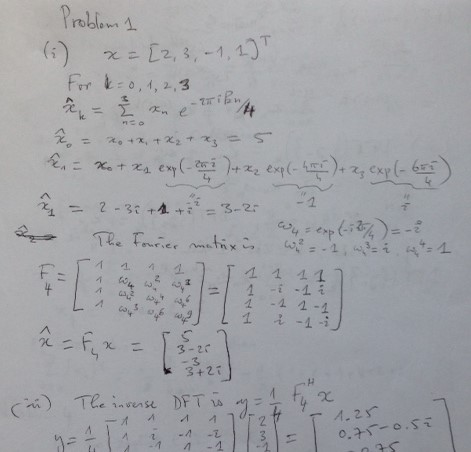 Problem 1
(i) x = [2, 3, -1, 1]ᵀ
For k = 0, 1, 2, 3
x̂ₖ = Σₙ₌₀³ xₙ e^(-2πikn/4)
x̂₀ = x₀ + x₁ + x₂ + x₃ = 5
x̂₁ = x₀ + x₁ exp(-2πi/4) + x₂ exp(-4πi/4) + x₃ exp(-6πi/4)
" -i " -1 " i
x̂₁ = 2 - 3i + 1 + i = 3 - 2i
ω₄ = exp(-i2π/4) = -i
The Fourier matrix is ω₄² = -1, ω₄³ = i, ω₄⁴ = 1
F₄ = [1 1 1 1; 1 ω₄ ω₄² ω₄³; 1 ω₄² ω₄⁴ ω₄⁶; 1 ω₄³ ω₄⁶ ω₄⁹] = [1 1 1 1; 1 -i -1 i; 1 -1 1 -1; 1 i -1 -i]
x̂ = F₄ x = [5; 3-2i; -3; 3+2i]
(iii) The inverse DFT is y = 1/4 F₄ᴴ x
y = 1/4 [1 1 1 1; 1 i -1 -i] [2; 3; -1] = [1.25; 0.75-0.5i; -0.75]